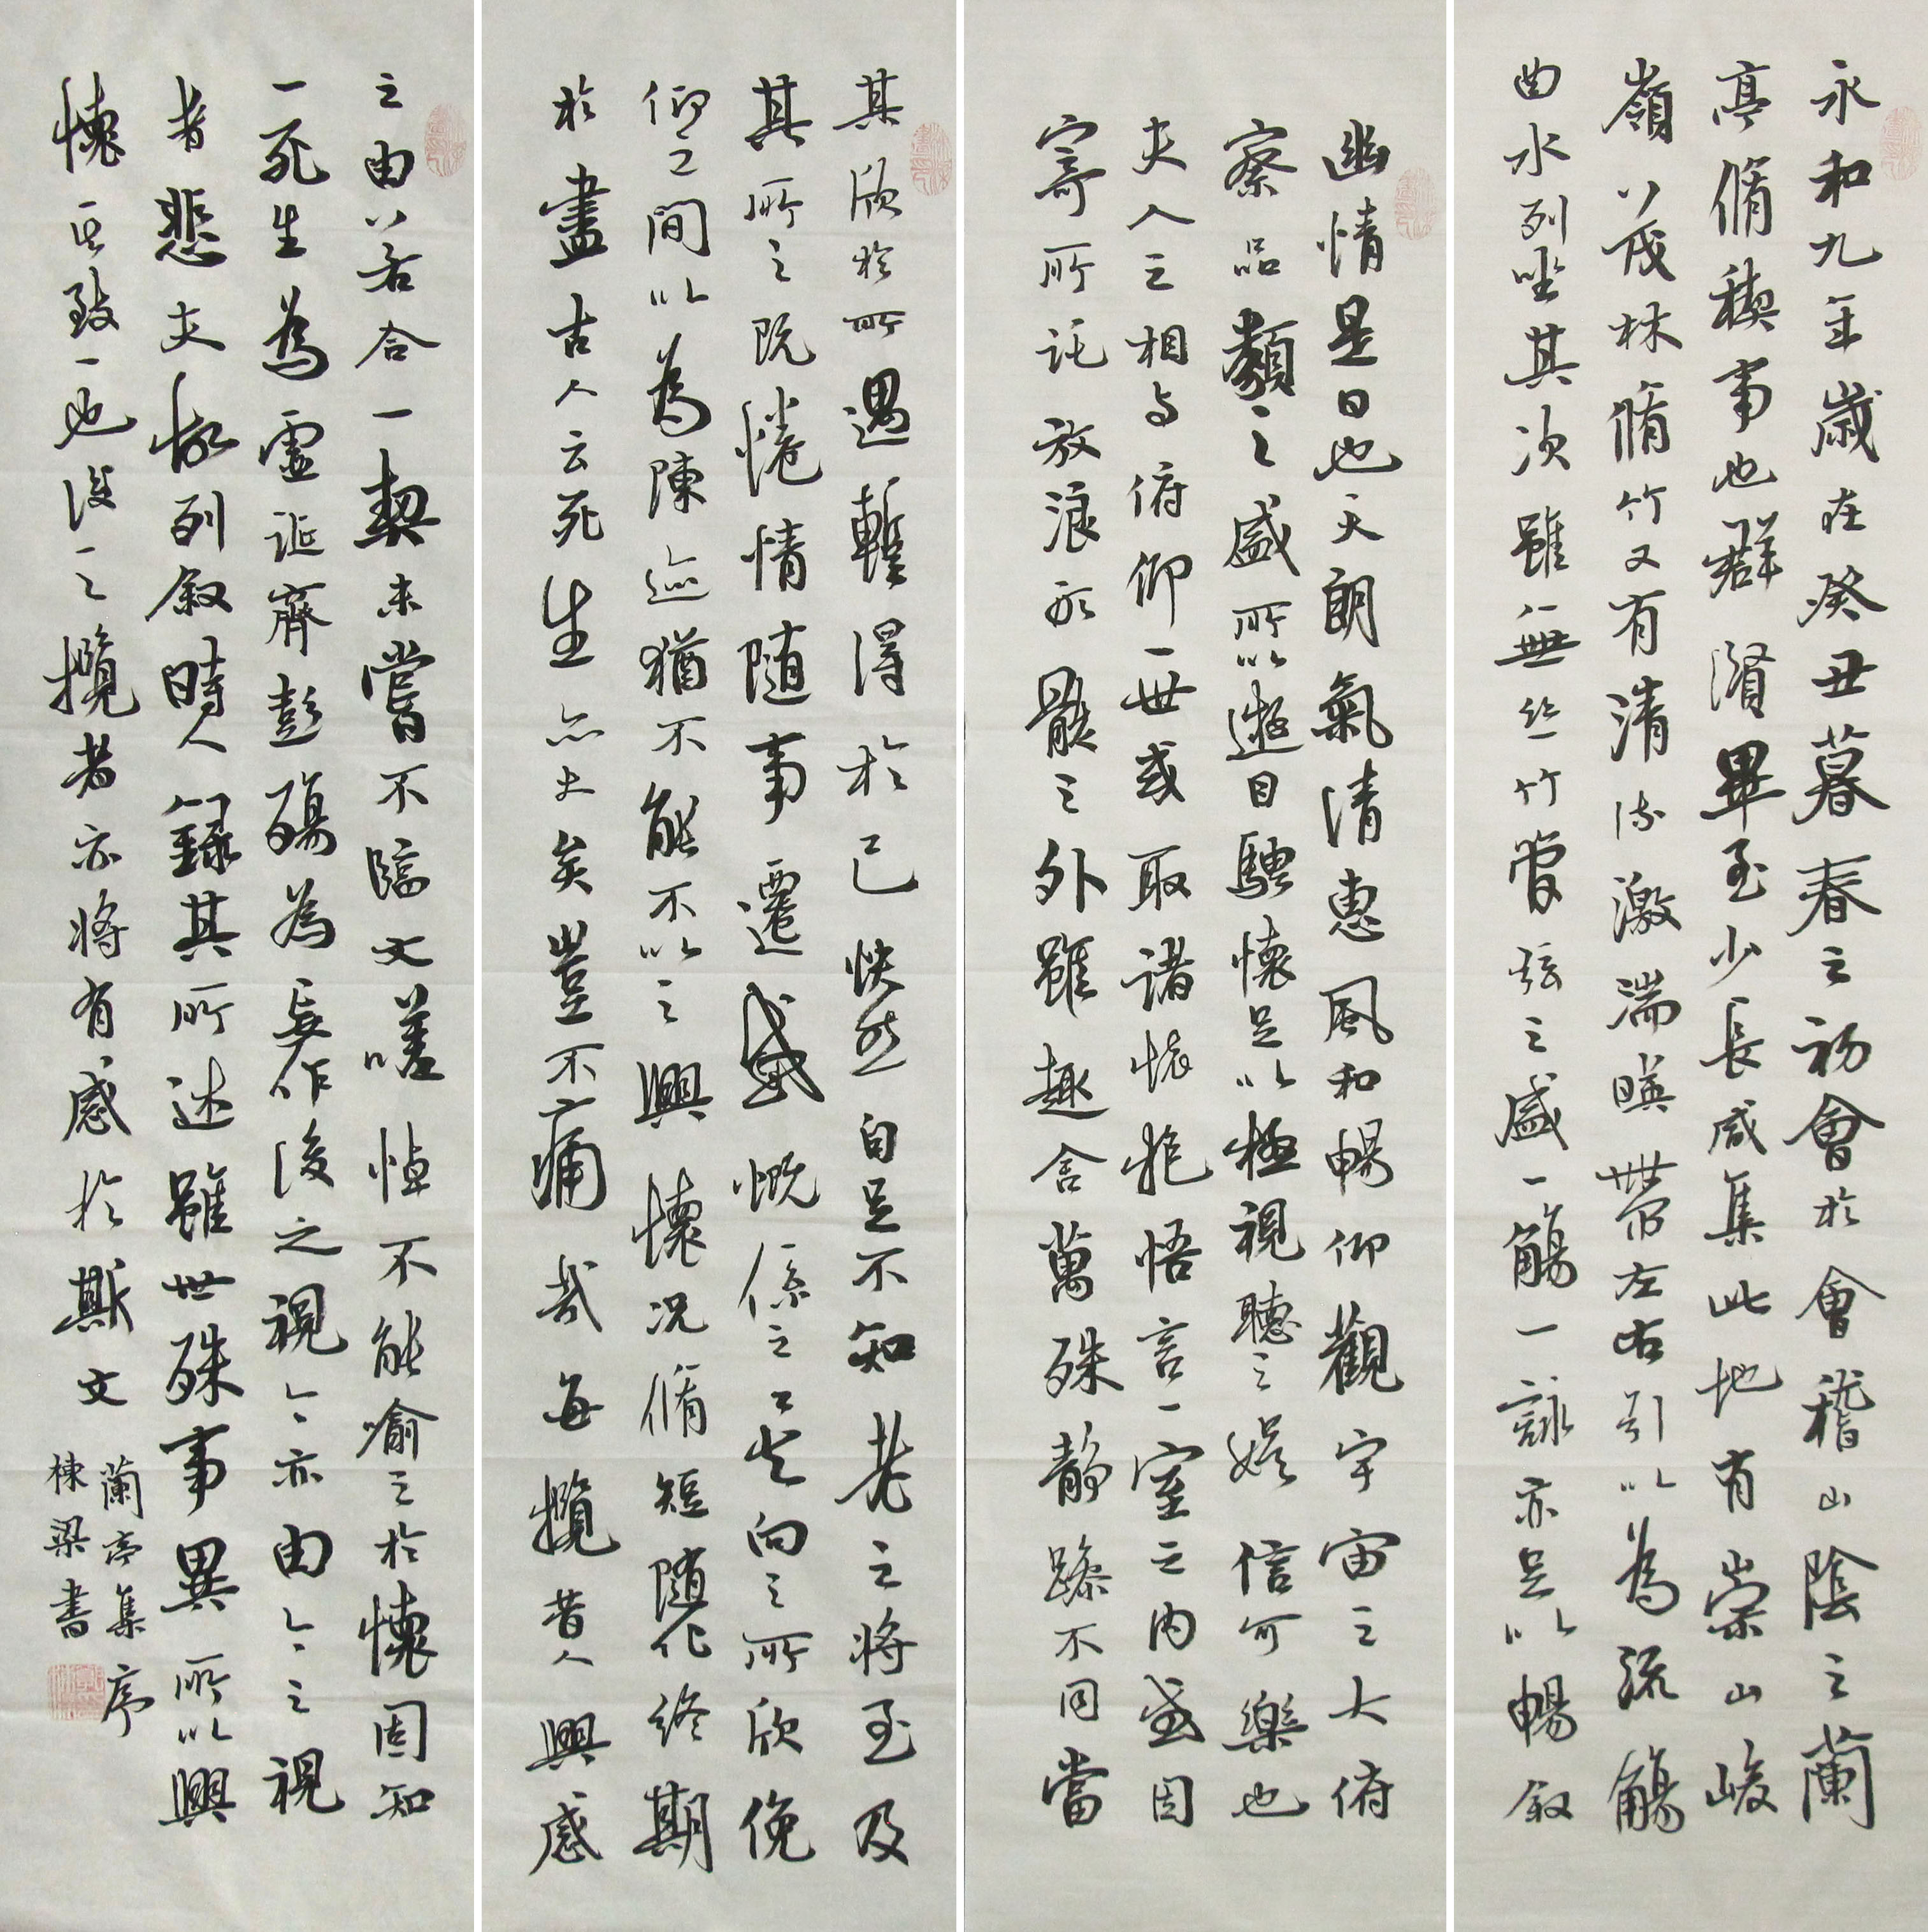 永和九年歲在癸丑暮春之初會於會稽山陰之蘭
亭脩稧事也群賢畢至少長咸集此地有崇山峻
嶺茂林脩竹又有清流激湍暎帶左右引以為流觴
曲水列坐其次雖無絲竹管弦之盛一觴一詠亦足以暢叙
幽情是日也天朗氣清惠風和暢仰觀宇宙之大俯
察品類之盛所以遊目騁懷足以極視聽之娛信可樂也
夫人之相与俯仰一世或取諸懷抱悟言一室之内或因
寄所託放浪形骸之外雖趣舍萬殊静躁不同當
其欣於所遇暫得於己怏然自足不知老之將至及
其所之既惓情随事遷感慨係之矣向之所欣俛
仰之間以為陳迹猶不能不以之興懷况脩短随化終期
於盡古人云死生亦大矣豈不痛哉每攬昔人興感
之由若合一契未嘗不臨文嗟悼不能喻之於懷固知
一死生為虛誕齊彭殤為妄作後之視今亦由今之視
者悲夫故列叙時人録其所述雖世殊事異所以興
懷其致一也後之攬者亦將有感於斯文
蘭亭集序
棟梁書